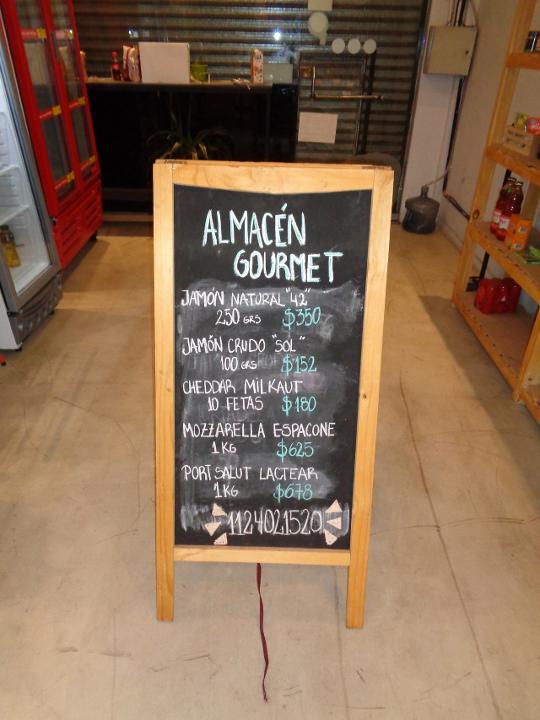 ALMACÉN
GOURMET
JAMÓN NATURAL "42"
250 GRS $350
JAMÓN CRUDO "SOL"
100 GRS $152
CHEDDAR MILKAUT
10 FETAS $180
MOZZARELLA ESPACONE
1 KG $625
PORT SALUT LACTEAR
1 KG $678
1124021520